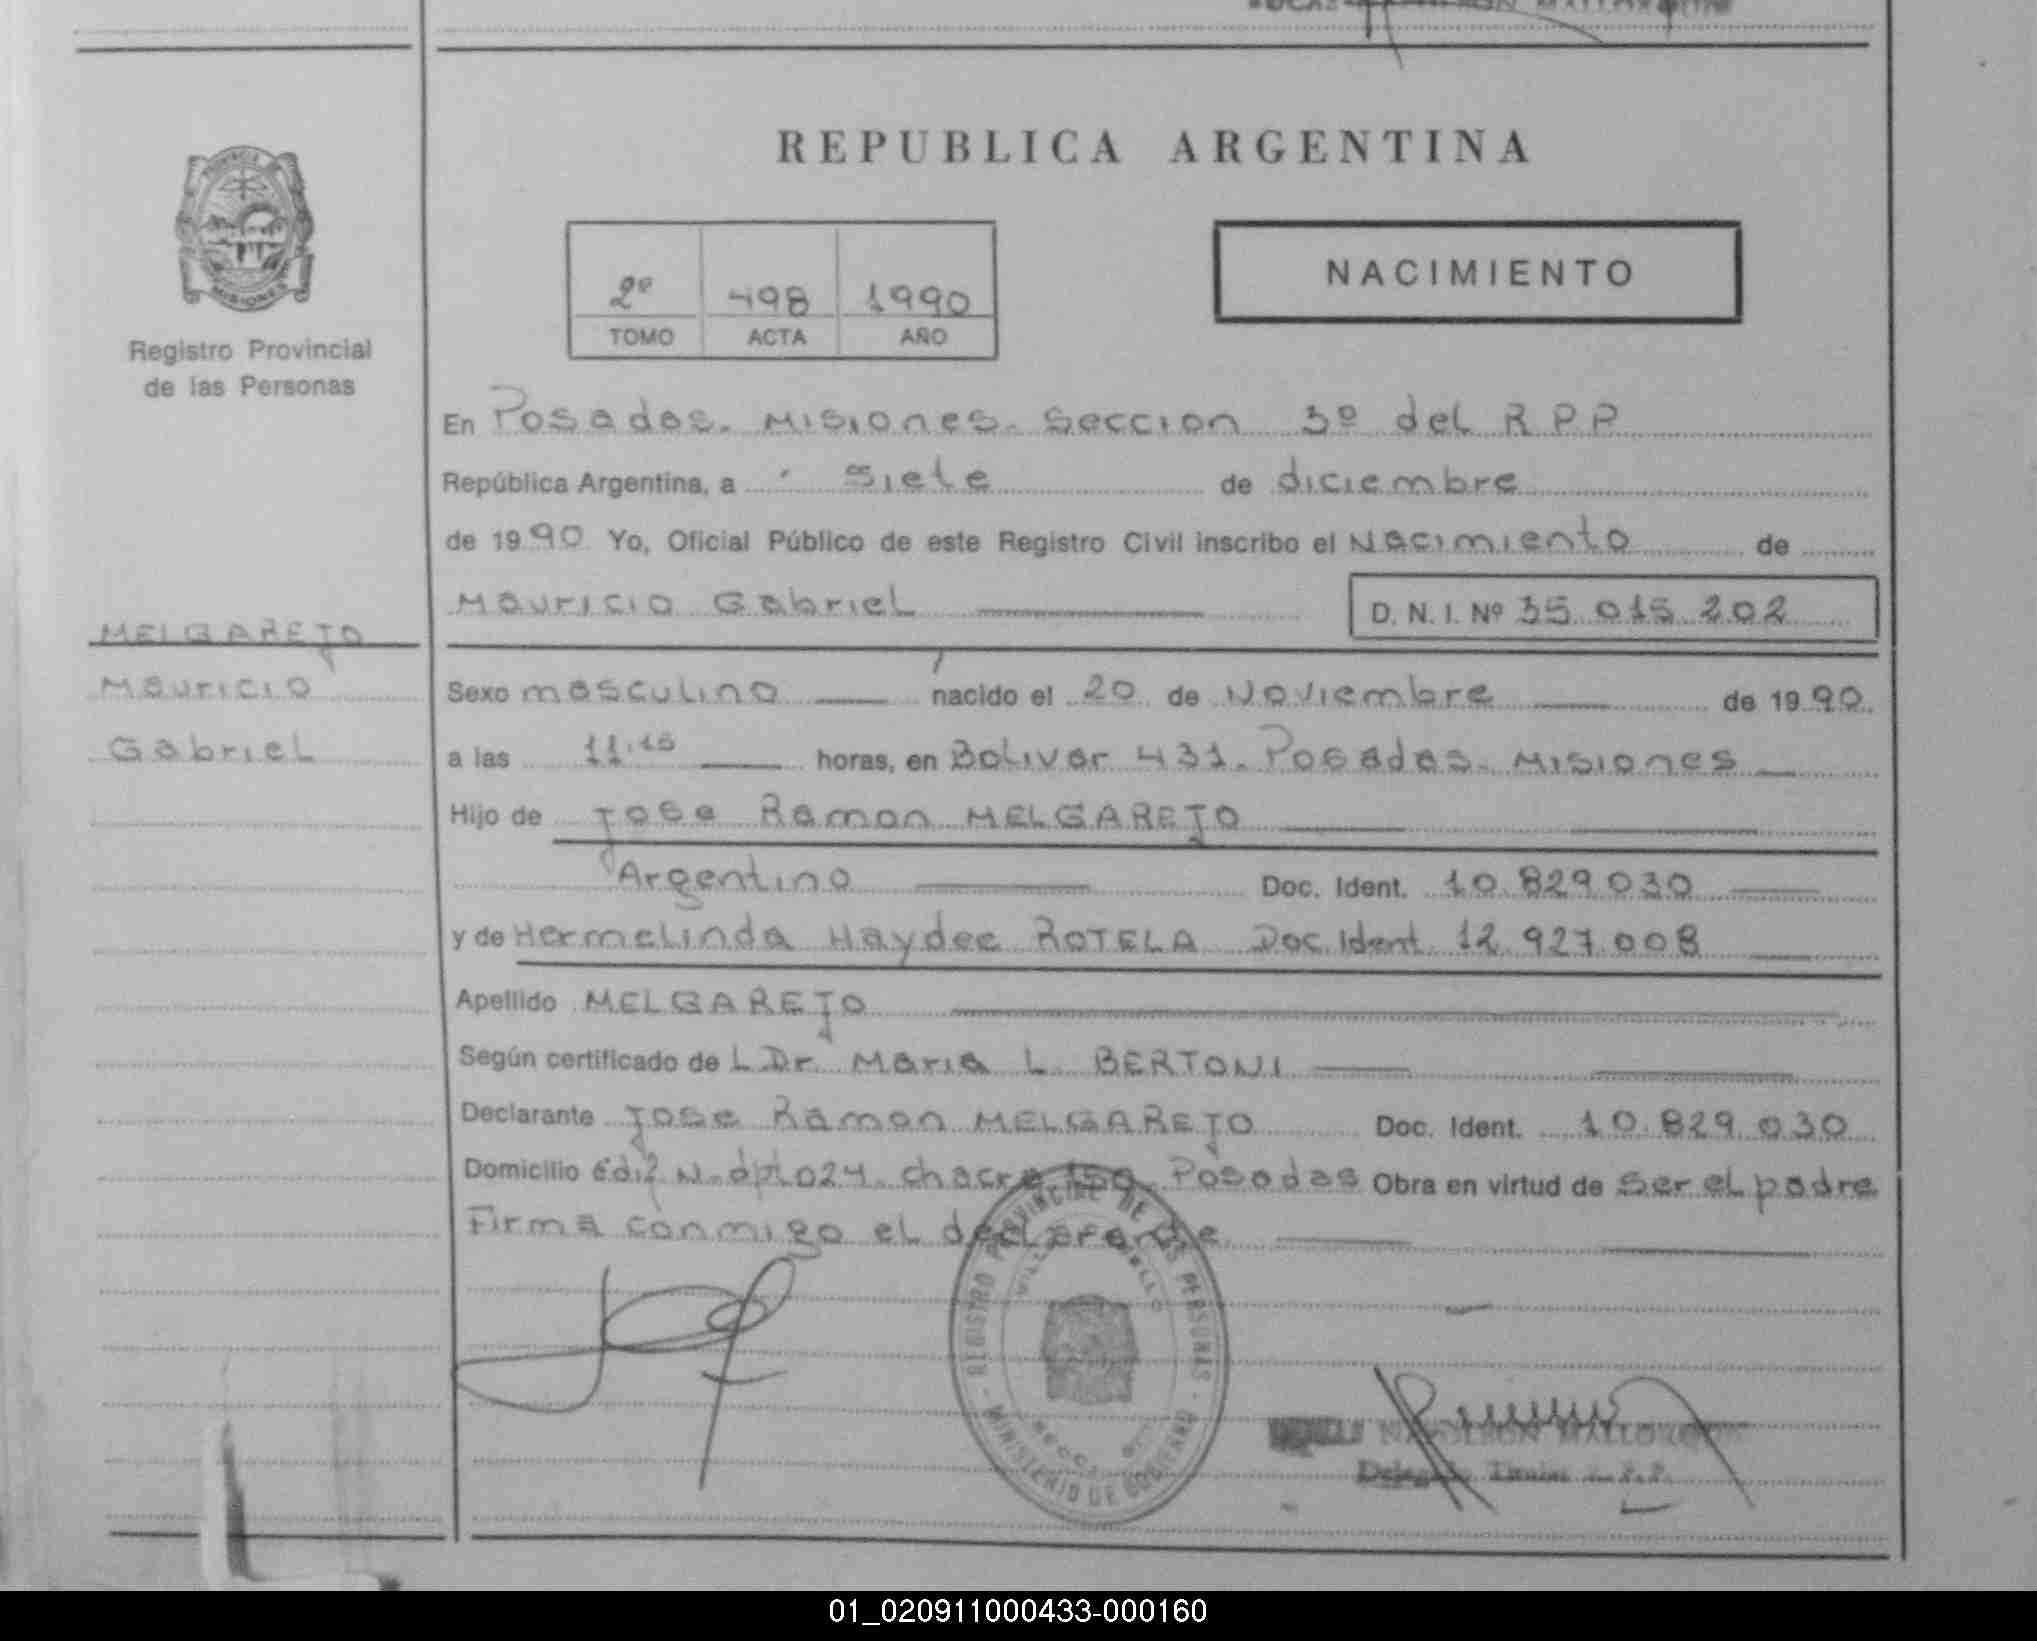 REPUBLICA ARGENTINA
PROVINCIA DE
MISIONES
Registro Provincial
de las Personas
2º 498 1990
TOMO ACTA AÑO
NACIMIENTO
En Posadas. Misiones. Seccion 3º del R P P
República Argentina, a siete de diciembre
de 1990 Yo, Oficial Público de este Registro Civil inscribo el Nacimiento de
Mauricio Gabriel D. N. I. Nº 35.015.202
MELGAREJO
Mauricio
Gabriel
Sexo masculino nacido el 20 de Noviembre de 1990
a las 11.15 horas, en Bolivar 431. Posadas. Misiones
Hijo de Jose Ramon MELGAREJO
Argentino Doc. Ident. 10.829.030
y de Hermelinda Haydee ROTELA Doc. Ident. 12.927.008
Apellido MELGAREJO
Según certificado de L.Dr. Maria L. BERTONI
Declarante Jose Ramon MELGAREJO Doc. Ident. 10.829.030
Domicilio Edif N. dpto 24. chacra 150. Posadas Obra en virtud de ser el padre
Firma conmigo el declarante
REGISTRO PROVINCIAL DE LAS PERSONAS
MINISTERIO DE GOBIERNO
NAPOLEON MALLORQUIN
Titular
01_020911000433-000160